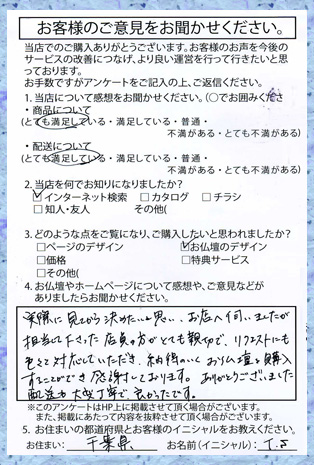 お客様のご意見をお聞かせください。
当店でのご購入ありがとうございます。お客様のお声を今後の
サービスの改善につなげ、より良い運営を行って行きたいと思
っております。
お手数ですがアンケートをご記入の上、ご返信ください。
1. 当店について感想をお聞かせください。(○でお囲みください
・商品について
(とても満足している・満足している・普通・
不満がある・とても不満がある)
・配送について
(とても満足している・満足している・普通・
不満がある・とても不満がある)
2. 当店を何でお知りになりましたか?
☑インターネット検索 □カタログ □チラシ
□知人・友人 その他(
3. どのような点をご覧になり、ご購入したいと思われましたか?
□ページのデザイン ☑お仏壇のデザイン
□価格 □特典サービス
□その他(
4. お仏壇やホームページについて感想や、ご意見などが
ありましたらお聞かせください。
実際に見てから決めたいと思い、お店へ伺いましたが
担当して下さった店員の方がとても親切で、リクエストにも
色々と対応していただき、納得のいくお仏壇を購入
することができ感謝しております。ありがとうございました
配送も大変丁寧で良かったです。
※このアンケートはHP上に掲載させて頂く場合がございます。
また、掲載にあたって内容を抜粋させて頂く場合がございます。
5. お住まいの都道府県とお客様のイニシャルをお教えください。
お住まい: 千葉県 お名前(イニシャル): T.